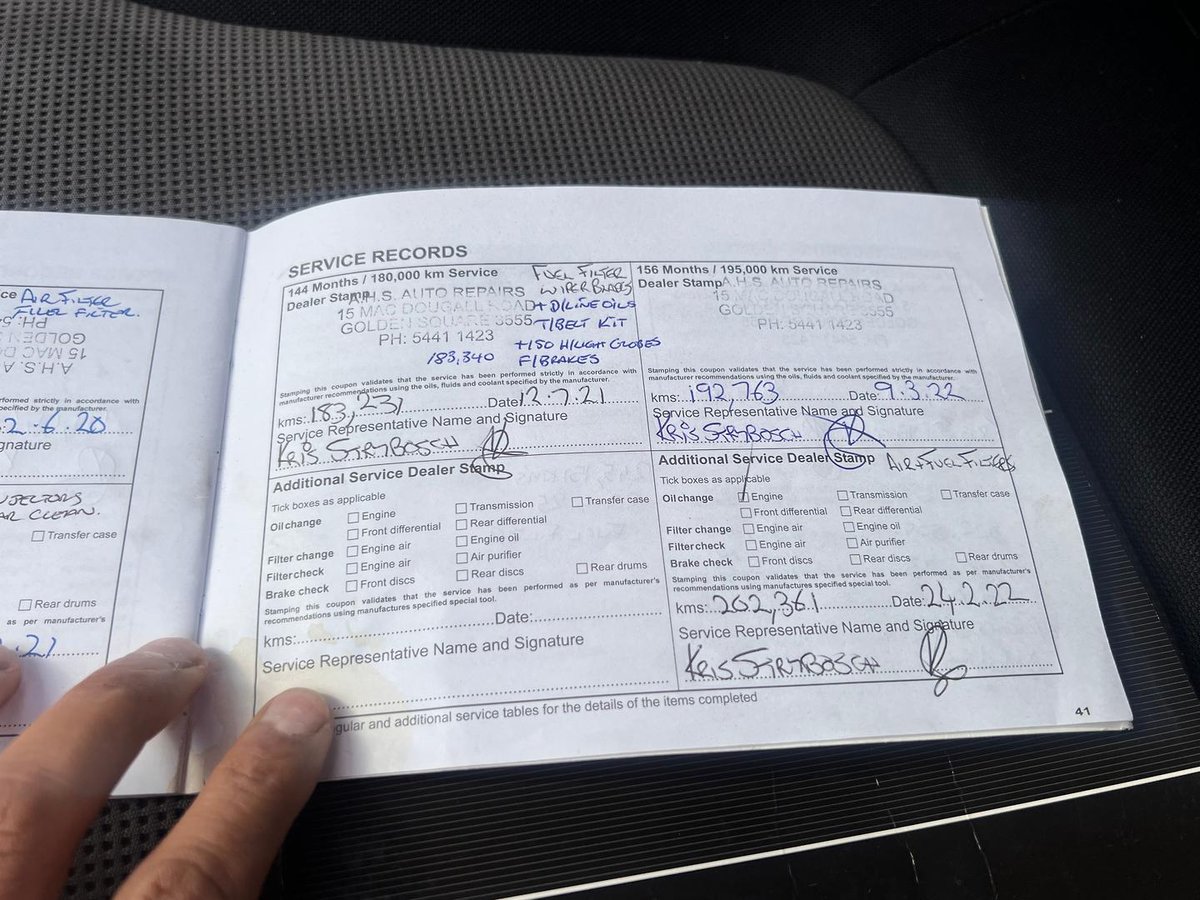 ce AIR FILTER
FUEL FILTER.
PH: 5
GOLDEN
15 MAC D
A.H.S. A
rformed strictly in accordance with
pecified by the manufacturer.
2.6.20
gnature
INJECTORS
CLEAN.
Transfer case
Rear drums
as per manufacturer's
.21
SERVICE RECORDS
144 Months / 180,000 km Service
FUEL FILTER
Dealer Stamp A.H.S. AUTO REPAIRS
WIPER BLADES
15 MAC DOUGALL ROAD
+ D/LINE OILS
GOLDEN SQUARE 3555
T/BELT KIT
PH: 5441 1423
+150 H/LIGHT GLOBES
183,340
F/BRAKES
Stamping this coupon validates that the service has been performed strictly in accordance with
manufacturer recommendations using the oils, fluids and coolant specified by the manufacturer.
kms: 183,231 Date 12.7.21
Service Representative Name and Signature
KRIS STRYBOSCH
Additional Service Dealer Stamp
Tick boxes as applicable
Oil change Engine Transmission Transfer case
Front differential Rear differential
Filter change Engine air Engine oil
Filter check Engine air Air purifier
Brake check Front discs Rear discs Rear drums
Stamping this coupon validates that the service has been performed as per manufacturer's
recommendations using manufactures specified special tool.
kms: Date:
Service Representative Name and Signature
156 Months / 195,000 km Service
Dealer Stamp A.H.S. AUTO REPAIRS
15 ROAD
GOLDEN SQUARE 3555
PH: 5441 1423
Stamping this coupon validates that the service has been performed strictly in accordance with
manufacturer recommendations using the oils, fluids and coolant specified by the manufacturer.
kms: 192,763 Date: 9.3.22
Service Representative Name and Signature
KRIS STRYBOSCH
Additional Service Dealer Stamp AIR + FUEL FILTERS
Tick boxes as applicable
Oil change Engine Transmission Transfer case
Front differential Rear differential
Filter change Engine air Engine oil
Filter check Engine air Air purifier
Brake check Front discs Rear discs Rear drums
Stamping this coupon validates that the service has been performed as per manufacturer's
recommendations using manufactures specified special tool.
kms: 202,361 Date: 24.2.22
Service Representative Name and Signature
KRIS STRYBOSCH
gular and additional service tables for the details of the items completed
41